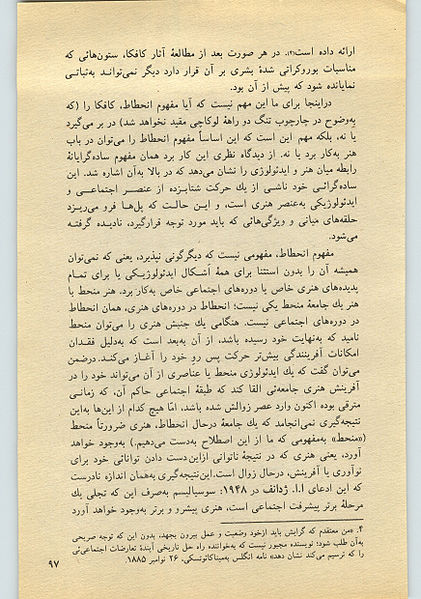 ارائه داده است(۴). در هر صورت بعد از مطالعهٔ آثار کافکا، ستون‌هائی که
مناسبات بوروکراتی شدهٔ بشری بر آن قرار دارد دیگر نمی‌توانـد به‌ثباتـی
نمایانده شود که پیش از آن بود.
دراینجا برای ما این مهم نیست که آیا مفهوم انحطاط، کافکا را (که
به‌وضوح در چارچوب تنگ دو راههٔ لوکاچی مقید نخواهد شد) در بر می‌گیرد
یا نه، بلکه مهم این است که این اساساً مفهوم انحطاط را می‌توان در باب
هنر به‌کار برد یا نه. از دیدگاه نظری این کار برد همان مفهوم ساده‌گرایانهٔ
رابطه میان هنر و ایدئولوژی را نشان می‌دهد که در بالا به‌آن اشاره شد. این
ساده‌گرائـی خود ناشـی از یك حرکت شتابـزده از عنصـر اجتماعـی و
ایدئولوژیکی به‌عنصر هنری است، و این حالـت که پل‌هـا فرو می‌ریـزد
حلقه‌های میانی و ویژگی‌هائی که باید مورد توجه قرارگیرد، نادیـده گرفتـه
می‌شود.
مفهوم انحطاط، مفهومی نیست که دیگرگونی نپذیرد، یعنی که نمی‌توان
همیشه آن را بدون استثنا برای همهٔ أشکال ایدئولوژیکـی یا برای تمـام
پدیده‌های هنری خاص یا دوره‌های اجتماعی خاص به‌کار برد. هنر منحط با
هنر یك جامعهٔ منحط یکی نیست؛ انحطاط در دوره‌های هنری، همان انحطاط
در دوره‌های اجتماعی نیست. هنگامی یك جنبش هنری را می‌توان منحط
نامید که به‌نهایت خود رسیده باشد، از آن به‌بعد است که به‌دلیل فقـدان
امکانات آفرینندگی پیش‌تر حرکت پس رو خود را آغـاز می‌کنـد. درضمن
می‌توان گفت که یك ایدئولوژی منحط یا عناصری از آن می‌تواند خود را در
آفرینش هنری جامعه‌ئی القا کند که طبقهٔ اجتماعی حاکم آن، که زمانـی
مترقی بوده اکنون وارد عصر زوالش شده باشد، امّا هیچ کدام از این‌ها به‌این
نتیجه‌گیری نمی‌انجامد که یك جامعهٔ درحال انحطاط، هنری ضرورتاً منحط
(«منحط» به‌مفهومی که ما از این اصطلاح به‌دست می‌دهیم.) به‌وجود خواهد
آورد، یعنی هنری که در نتیجهٔ ناتوانی ازاین‌دست دادن توانائی خود برای
نوآوری یا آفرینش، درحال زوال است. این‌نتیجه‌گیری به‌همان اندازه نادرست
که این ادعای ا.ا. ژدانف در ۱۹۴۸: سوسیالیسم به‌صرف این که تجلی یك
مرحلهٔ برتر پیشرفت اجتماعی است، هنری پیشرو و برتر به‌وجود خواهد آورد
۴. «من معتقدم که گرایش باید ازخود وضعیت و عمل بیرون بجهد، بدون این که توجه صریحی
به‌آن طلب شود؛ نویسنده مجبور نیست که به‌خواننده راه حل تاریخی آیندهٔ تعارضات اجتماعی‌ئی
را که ترسیم می‌کند نشان دهد» نامه انگلس به‌میناکائوتسکی، ۲۶ نوامبر ۱۸۸۵.
۹۷